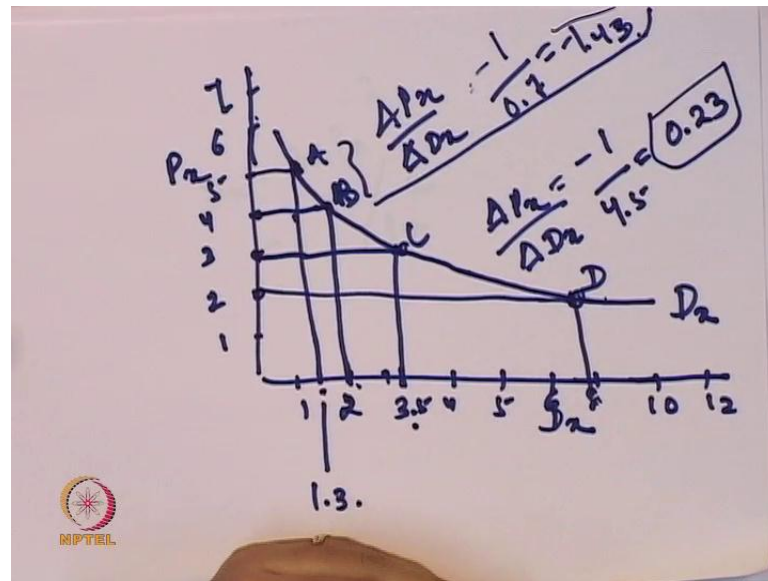 7
6
Px
5
4
3
2
1
A
B
C
D
Dx
ΔPx / ΔDx = -1 / 0.7 = -1.43
ΔPx / ΔDx = -1 / 4.5 = 0.23
1 2 3.5 4 5 6 8 10 12
Dx
1.3.
NPTEL